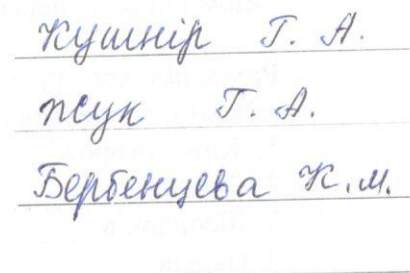 Кушнір Г. А.
Жук Г. А.
Бербенцева К.М.